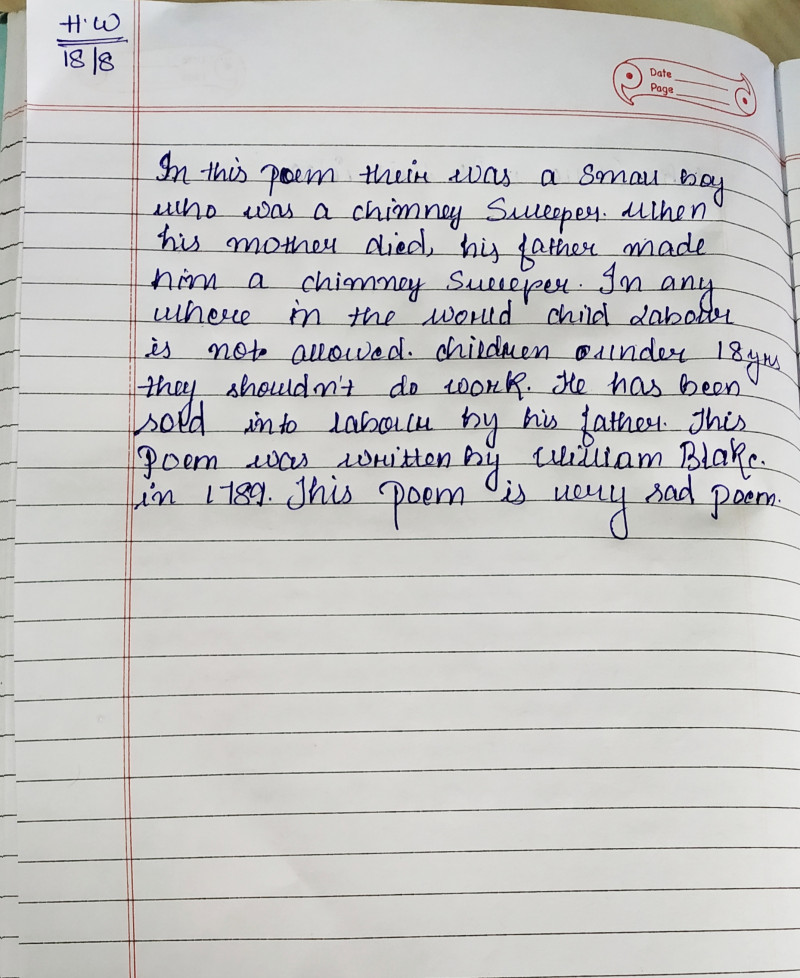 H.W
18/8
Date
Page
In this poem their was a small boy
who was a chimney Sweeper. When
his mother died, his father made
him a chimney Sweeper. In any
where in the world child Labour
is not allowed. children under 18yrs
they shouldn't do work. He has been
sold into labour by his father. This
Poem was written by William Blake.
in 1789. This poem is very sad poem.